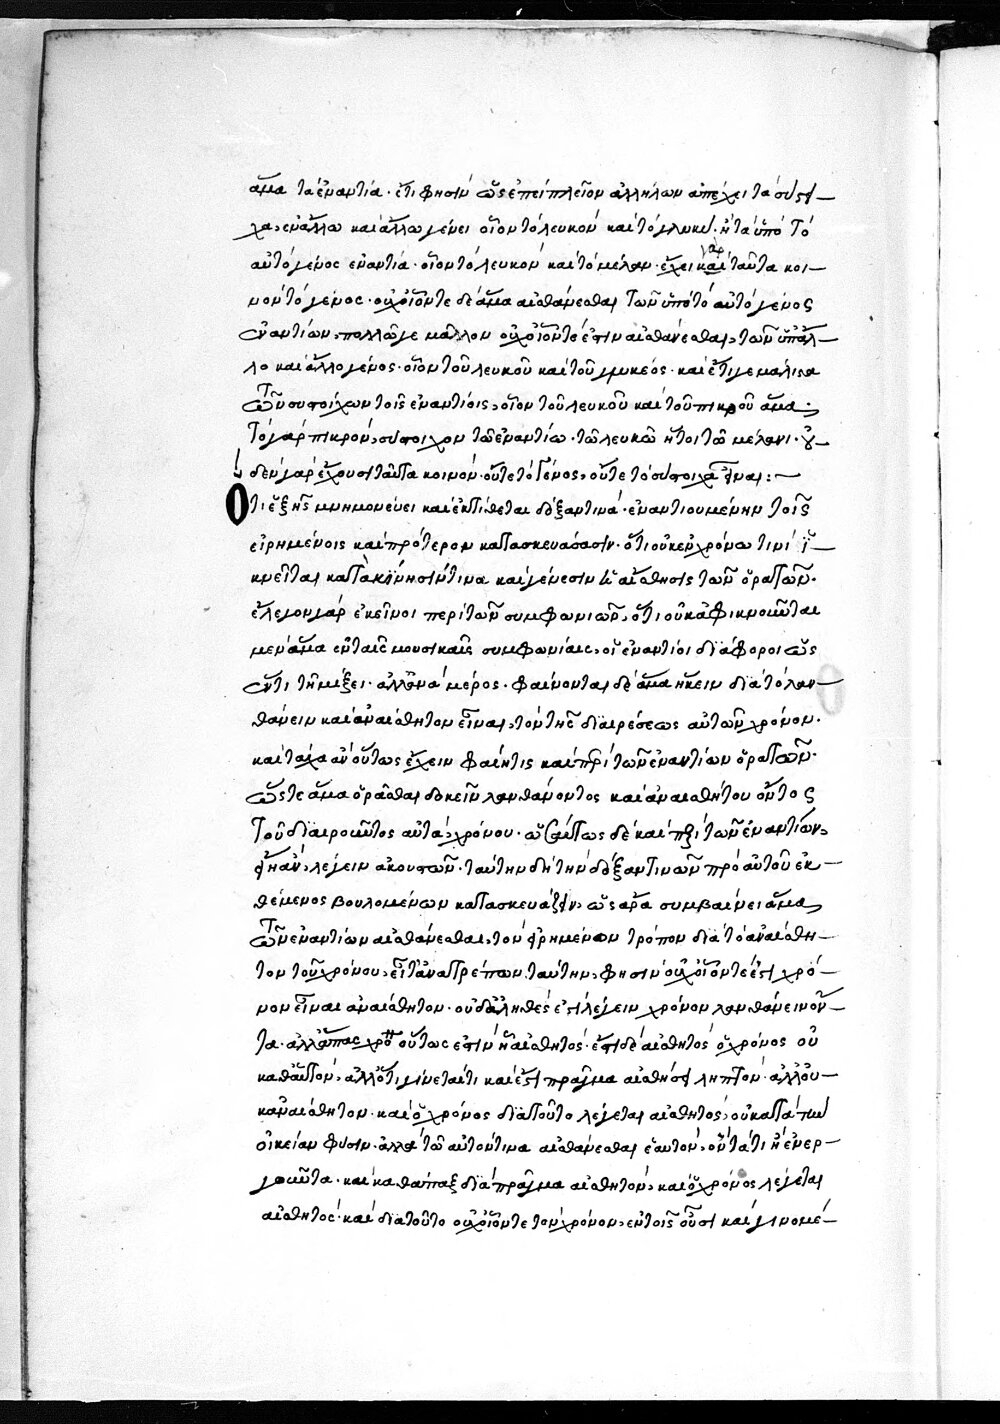 ἅμα τὰ ἐναντία· ἔτι φησὶν ὡς ἐπεὶ πλεῖον ἀλλήλων ἀπέχει τὰ σύστ-
χα, ἐν ἄλλω καὶ ἄλλω γένει οἷον τὸ λευκὸν καὶ τὸ γλυκὺ· ἢ τὰ ὑπὸ τὸ
αὐτὸ γένος ἐναντία· οἷον τὸ λευκὸν καὶ τὸ μέλαν· ἔχει γὰρ καὶ ταῦτα κοι-
νὸν τὸ γένος· οὐχ οἷόν τε δὲ ἅμα αἰσθάνεσθαι τῶν ὑπὸ τὸ αὐτὸ γένος
ἐναντίων, πολλῶ γε μᾶλλον οὐχ οἷόν τέ ἐστιν αἰσθάνεσθαι, τῶν ὑπ' ἄλ-
λο καὶ ἄλλο γένος· οἷον τοῦ λευκοῦ καὶ τοῦ γλυκέος· καὶ ἔτι γε μάλιστα
τῶν συστοίχων τοῖς ἐναντίοις, οἷον τοῦ λευκοῦ καὶ τοῦ πικροῦ ἅμα,
τὸ γὰρ πικρὸν, σύστοιχον τῶ ἐναντίω· τῶ λευκῶ ἤτοι τῶ μέλανι· οὐ-
δὲν γὰρ ἔχουσι ταῦτα κοινὸν· οὔτε τὸ γένος, οὔτε τὸ σύστοιχα εἶναι:—
Ὅτι ἑξῆς μνημονεύει καὶ ἐκτίθεται δόξαν τινὰ· ἐναντιουμένην τοῖς
εἰρημένοις καὶ πρότερον κατασκευάσασιν· ὅτι οὐκ ἐν χρόνω τινὶ ἱ-
κνεῖται κατὰ κίνησίν τινα καὶ γένεσιν ἡ αἴσθησις τῶν ὁρατῶν·
ἔλεγον γὰρ ἐκεῖνοι περὶ τῶν συμφωνιῶν, ὅτι οὐκ ἀφικνοῦνται
μὲν ἅμα ἐν ταῖς μουσικαῖς συμφωνίαις, οἱ ἐναντίοι διάφοροι ὡς
ἐν τῇ μίξει· ἀλλ' ἀνὰ μέρος· φαίνονται δὲ ἅμα ἥκειν διὰ τὸ λαν-
θάνειν καὶ ἀναίσθητον εἶναι, τὸν τῆς διαιρέσεως αὐτῶν χρόνον·
καὶ τάχα ἂν οὕτως ἔχειν φαίη τις καὶ περὶ τῶν ἐναντίων ὁρατῶν·
ὥς τε ἅμα ὁρᾶσθαι δοκεῖν λανθάνοντος καὶ ἀναισθήτου ὄντος
τοῦ διαιροῦντος αὐτὰ, χρόνου· ὡσαύτως δὲ καὶ περὶ τῶν ἐναντίων,
λέγειν ἀκουστῶν· ταύτην δὴ τὴν δόξαν τινῶν πρὸ αὐτοῦ ἐκ-
θέμενος βουλομένων κατασκευάζειν, ὡς ἄρα συμβαίνει ἅμα,
τῶν ἐναντίων αἰσθάνεσθαι, τὸν εἰρημένον τρόπον διὰ τὸ ἀναίσθη-
τον τοῦ χρόνου, εἶτ' ἀνατρέπων ταύτην, φησὶν οὐχ οἷόν τέ ἐστι χρό-
νον εἶναι ἀναίσθητον· οὐδ' ἀληθές ἐστι λέγειν χρόνον λανθάνειν ὄν-
τα· ἀλλ' ἅπας χρόνος οὕτως ἐστὶν αἰσθητός· ἔστι δὲ αἰσθητὸς ὁ χρόνος οὐ
καθ' αὑτὸν, ἀλλ' ὅτι γίνεταί τι καὶ ἔστι πρᾶγμα αἰσθήσει ληπτὸν· ἀλλ' οὐ-
κ ἀναίσθητον· καὶ ὁ χρόνος διὰ τοῦτο λέγεται αἰσθητὸς, οὐ κατὰ τὴν
οἰκείαν φύσιν· ἀλλὰ τῶ αὐτόν τινα αἰσθάνεσθαι ἑαυτὸν, ὄντα τι ἢ ἐνερ-
γοῦντα· καὶ καθάπαξ διὰ πρᾶγμα αἰσθητὸν, καὶ ὁ χρόνος λέγεται
αἰσθητός· καὶ διὰ τοῦτο οὐχ οἷόν τε τὸν χρόνον, ἐν τοῖς οὖσι καὶ γινομέ-